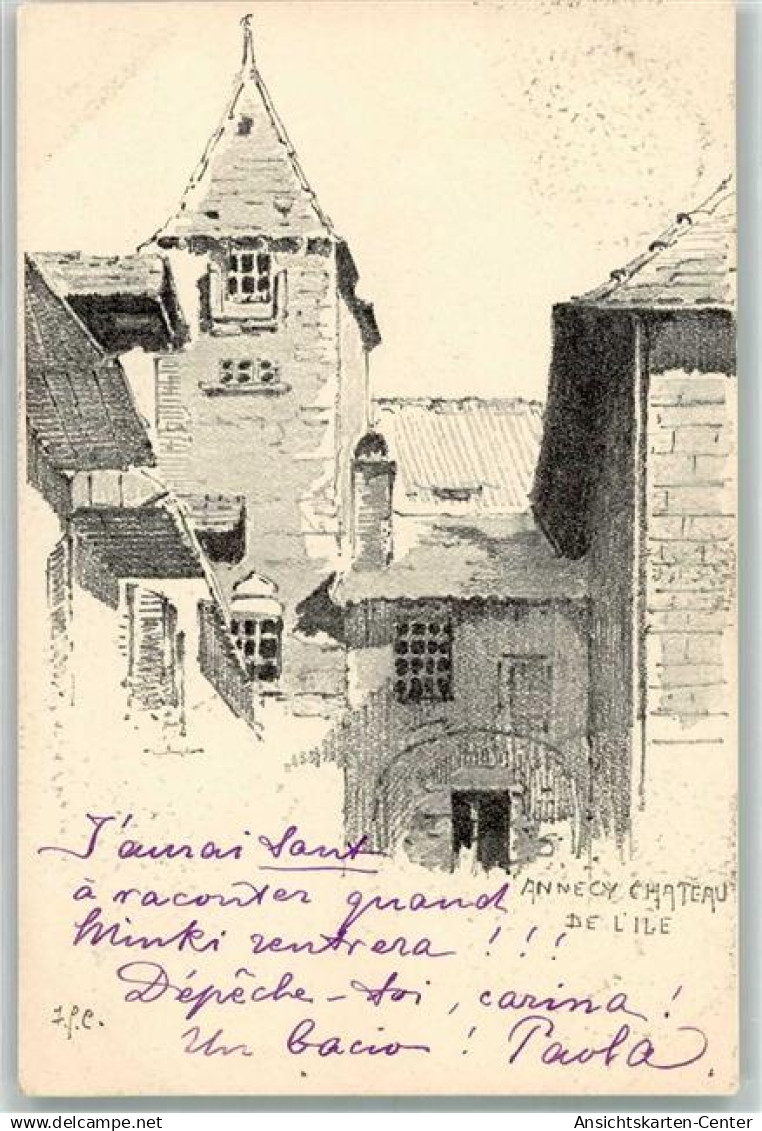 ANNECY CHATEAU
DE L'ILE
J'aurai tant
à raconter quand
Minki rentrera !!!
Dépêche-toi, carina !
Un bacio ! Paola
Ansichtskarten-Center